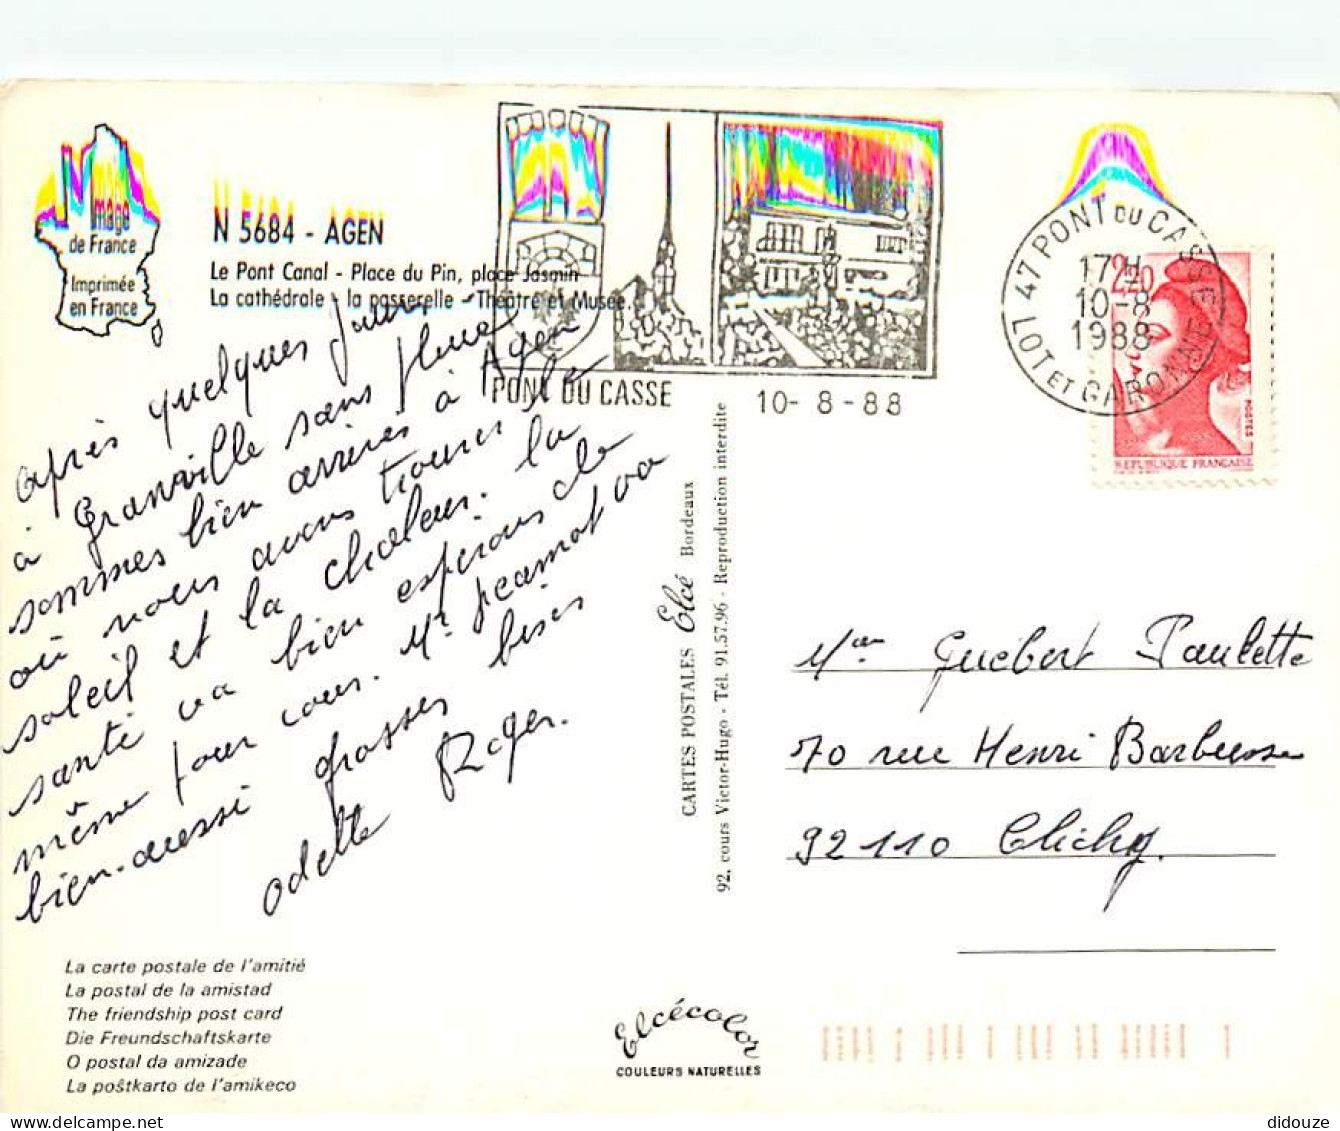 Image
de France
Imprimée
en France
N 5684 - AGEN
Le Pont Canal - Place du Pin, place Jasmin
La cathédrale - la passerelle - Théâtre et Musée.
PONT DU CASSE
10-8-88
47 PONT DU CASSE
17H
10-8
1988
LOT ET GARONNE
2,20
POSTES
REPUBLIQUE FRANÇAISE
après quelques jours
à Granville sans pluie
sommes bien arrivés à Agen
où nous avons trouvés le
soleil et la chaleur. la
santé va bien espérons de
même pour vous. Mr Jeannot va
bien. aussi grosses bises
Odette Roger.
CARTES POSTALES Elcé Bordeaux
92, cours Victor-Hugo - Tél. 91.57.96 - Reproduction interdite
Guébert Paulette
70 rue Henri Barbusse
92110 Clichy.
La carte postale de l'amitié
La postal de la amistad
The friendship post card
Die Freundschaftskarte
O postal da amizade
La poŝtkarto de l'amikeco
Elcécolor
COULEURS NATURELLES
didouze